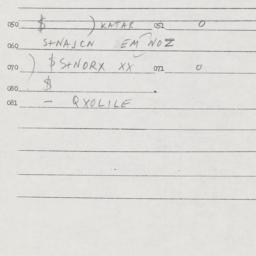 050 $ ) KATAR 052 0
060 S+NAJCN EM NOZ
070 ) $ S+NORX XX 071 0
080 $
081 — QXOLILE